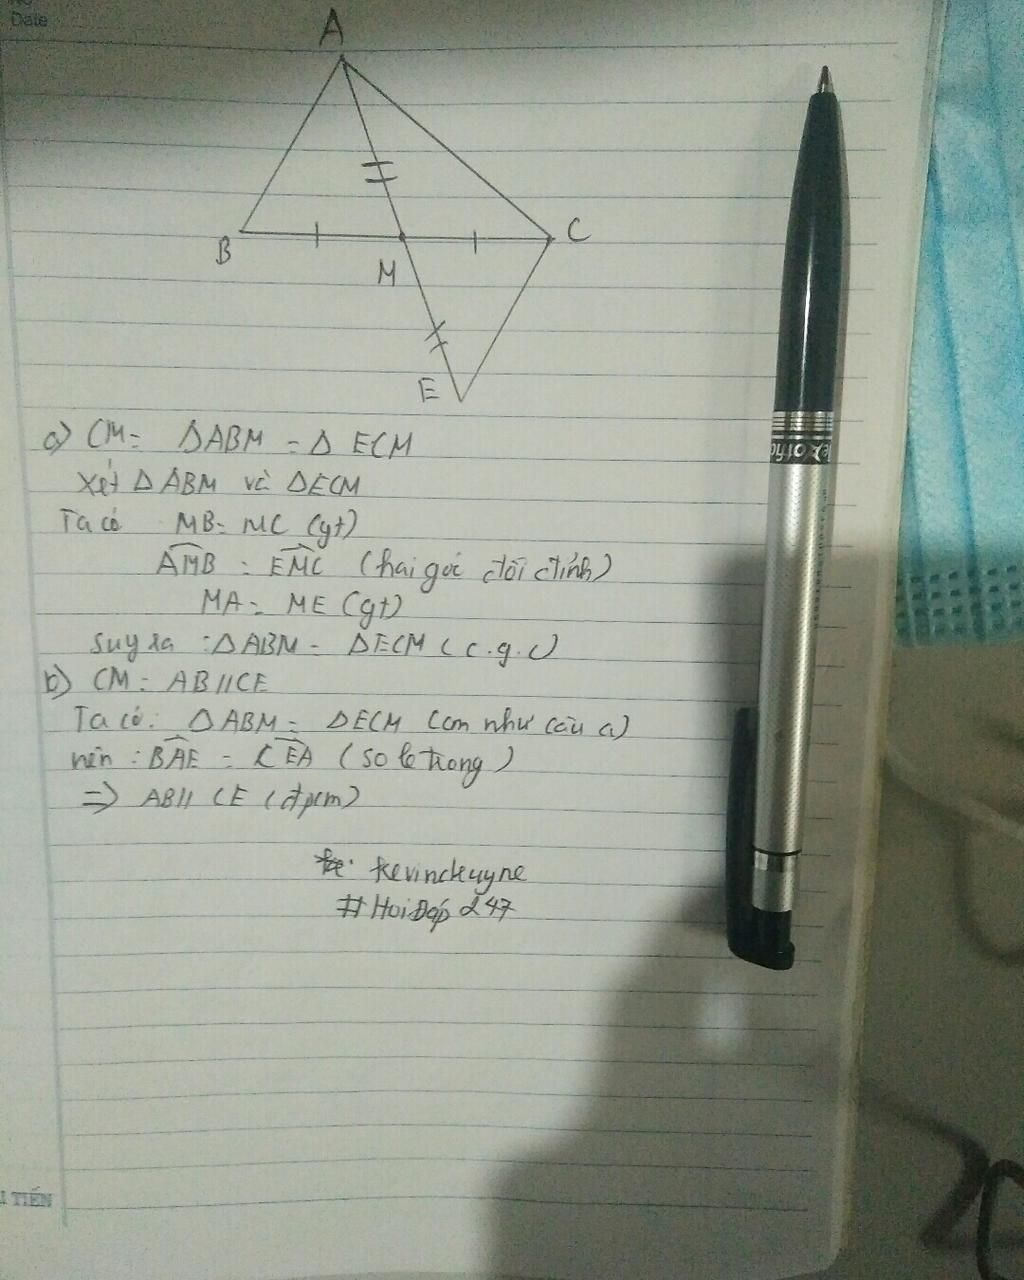 Date
A
B
C
M
E
a) CM: ΔABM = Δ ECM
Xét Δ ABM và ΔECM
Ta có MB = MC (gt)
AMB = EMC (hai góc đối đỉnh)
MA = ME (gt)
suy ra : ΔABM = ΔECM (c.g.c)
b) CM: AB//CE
Ta có: ΔABM = ΔECM (cm như câu a)
nên : BAE = CEA (so le trong)
=> AB// CE (đpcm)
# HoiĐap 247
TIẾN